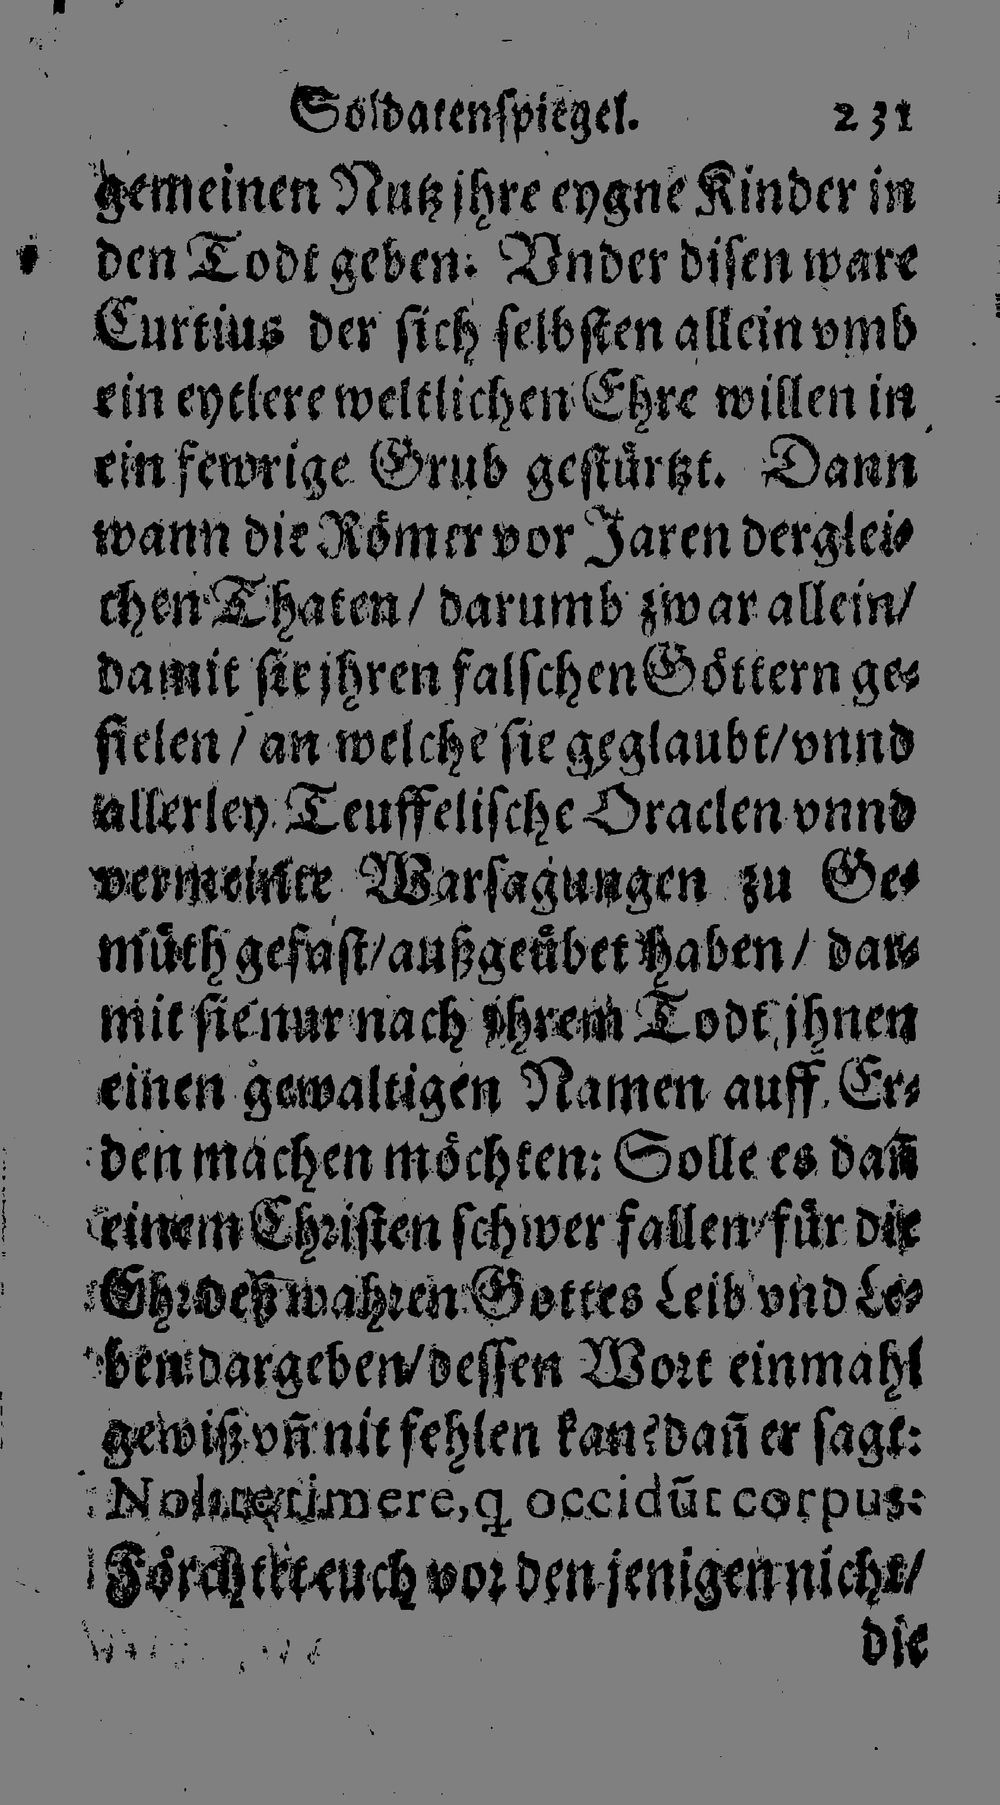 Soldatenspiegel. 231
gemeinen Nutz jhre eygne Kinder in
den Todt geben. Vnder disen ware
Curtius der sich selbsten allein vmb
ein eytlere weltlichen Ehre willen in
ein fewrige Grub gestürtzt. Dann
wann die Römer vor Jaren derglei-
chen Thaten / darumb zwar allein /
damit sie jhren falschen Göttern ge-
fielen / an welche sie geglaubt / vnnd
allerley Teuffelische Oraclen vnnd
vermeinte Warsagungen zu Ge-
müth gefast / außgeübet haben / dar-
mit sie nur nach jhrem Todt jhnen
einen gewaltigen Namen auff Er-
den machen möchten: Solle es dañ
einem Christen schwer fallen für die
Ehr deß wahren Gottes Leib vnd Le-
ben dargeben / dessen Wort einmahl
gewiß vñ nit fehlen kan? dañ er sagt:
Nolite timere, q occidũt corpus:
Förchtet euch vor den jenigen nicht /
die